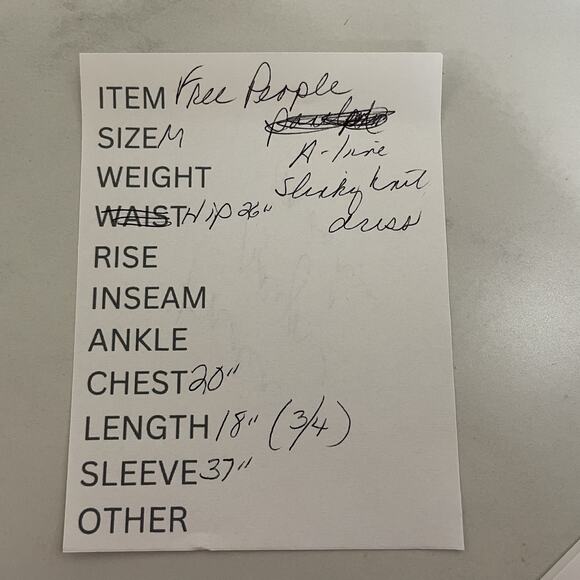 ITEM Free People
SIZE M
A-line
WEIGHT
Slinky knit
WAIST Hip 26"
dress
RISE
INSEAM
ANKLE
CHEST 20"
LENGTH 18" (3/4)
SLEEVE 37"
OTHER